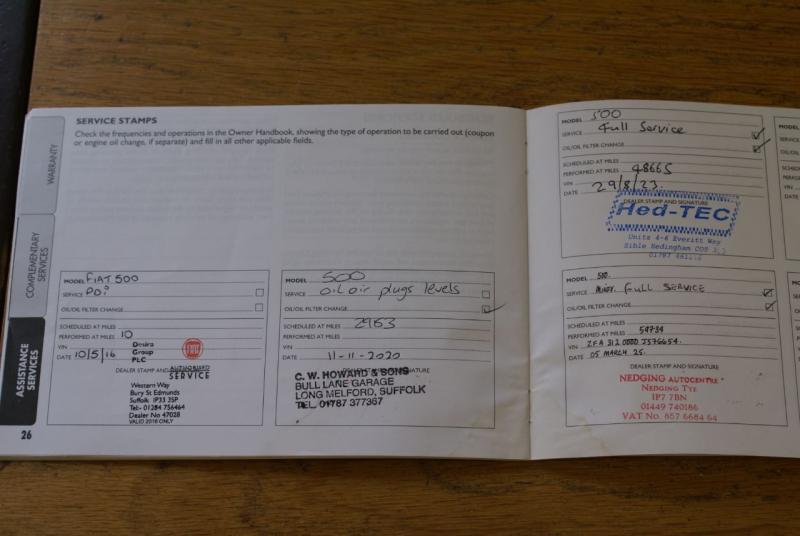 SERVICE STAMPS
Check the frequencies and operations in the Owner Handbook, showing the type of operation to be carried out (coupon
or engine oil change, if separate) and fill in all other applicable fields.
WARRANTY
COMPLEMENTARY
SERVICES
ASSISTANCE
SERVICES
26
MODEL FIAT 500
SERVICE PDI
OIL/OIL FILTER CHANGE
SCHEDULED AT MILES
PERFORMED AT MILES 10
VIN
DATE 10/5/16
Desira
Group
PLC
DEALER STAMP AND
AUTHORISED
SERVICE
Western Way
Bury St Edmunds
Suffolk IP33 3SP
Tel:- 01284 756464
Dealer No 47028
VALID 2016 ONLY
MODEL 500
SERVICE oil air plugs levels
OIL/OIL FILTER CHANGE
SCHEDULED AT MILES 2963
PERFORMED AT MILES
VIN
DATE 11-11-2020
SIGNATURE
C. W. HOWARD & SONS
BULL LANE GARAGE
LONG MELFORD, SUFFOLK
TEL. 01787 377367
MODEL 500
SERVICE Full Service
OIL/OIL FILTER CHANGE
SCHEDULED AT MILES
PERFORMED AT MILES 48665
VIN
DATE 29/8/23
DEALER STAMP AND SIGNATURE
Hed-TEC
Units 4-6 Everitt Way
Sible Hedingham CO9
01787
MODEL 500.
SERVICE FULL SERVICE
OIL/OIL FILTER CHANGE
SCHEDULED AT MILES
PERFORMED AT MILES 54734
VIN ZFA 312 0000 J576654.
DATE 05 MARCH 25.
DEALER STAMP AND SIGNATURE
NEDGING AUTOCENTRE
NEDGING TYE
IP7 7BN
01449 740186
VAT No. 857 6684 64
MODEL
SERVICE
OIL/OIL
SCHEDU
PERFOR
VIN
DATE